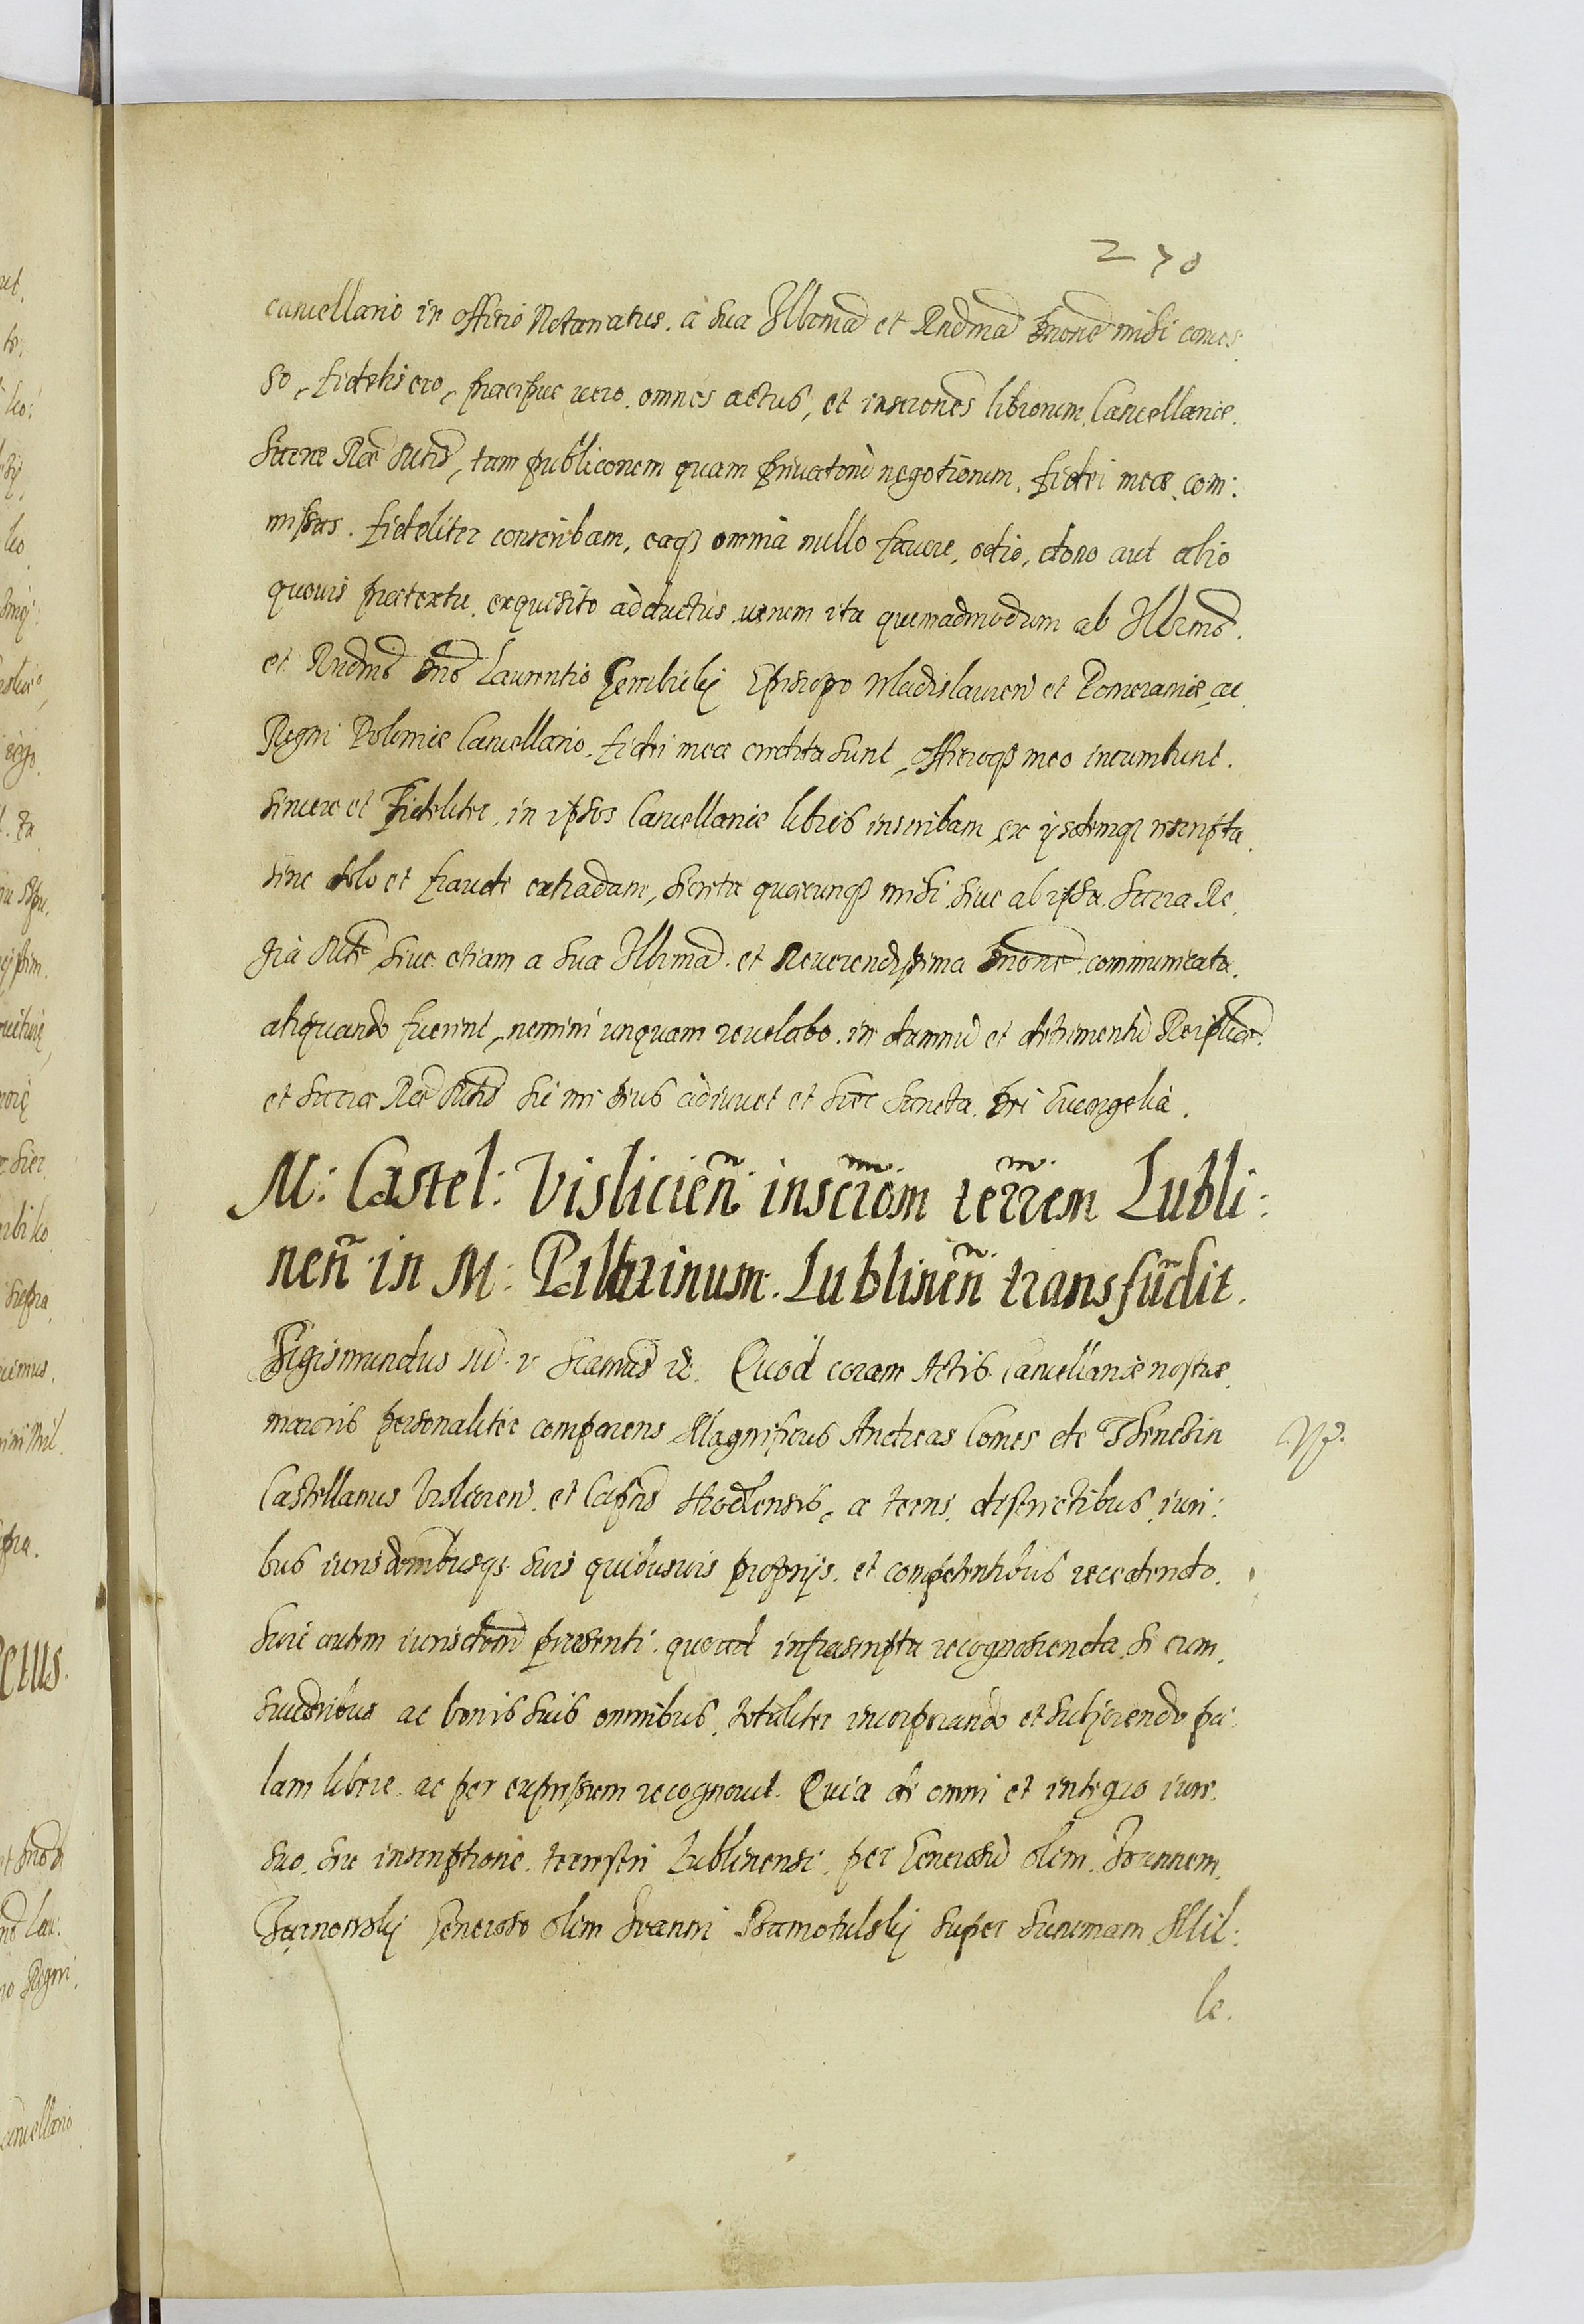 270
cancellario in officio Notariatus. a sua Illrma et Rndma Dnone mihi conces:
so, fidelis ero, praecipue vero omnes actus, et inscriones librorum Cancellariae.
Sacrae Rae Mtis, tam publicorum quam privatorũ negotiorum, fidei meae com:
missas. fideliter conscribam, eaqȝ omnia nullo favore, odio, dono aut alio
quovis praetextu exquisito adductus, verum ita quemadmodum ab Illrmo.
et Rndmo Dno Laurentio Gembicky Episcopo Wladislavien et Pomeraniae, ac
Regni Poloniae Cancellario. fidei meae credita sunt, officioqȝ meo incumbunt.
sincere et fideliter, in ipsos Cancellariae libros inscribam, ex ijsdemqȝ rescripta
sine dolo et fraude extradam, secreta quaecunqȝ mihi sive ab ipsa Sacra Re
gia Mte sive etiam a sua Illrma et Reverendissima Dnone communicata.
aliquando fuerint, nemini unquam revelabo in damnũ et detrimentũ Reiplicae
et Sacrae Rae Mtis sic me Deus adiuvet et haec Sancta Dei Evangelia.
M: Castel: Vislicieñ inscrom terrem Lubli:
neñ in M: Palatinum Lublineñ transfũdit.
Sigismundus iiiũ r Scamus rc. Quod coram Actis Cancellariae nostrae
maioris personaliter comparens Magnificus Andreas Comes de Thenczin
Castellanus Vislicien et Capnus Hrodlensis, a terris, districtibus, iuri:
bus iurisdombusqȝ suis quibusvis proprijs et competentibus recedendo.
Suae autem iurisdoni praesenti quoad infrascripta recognoscenda se cum
successoribus ac bonis suis omnibus, totaliter incorporando et subijciendo pa
lam libere ac per expressum recognovit. Quia de omni et integro iure.
suo, sive inscriptione terrestri Lublinensi per Generosũ olim Joannem
Czarnowsky Generoso olim Joanni Szamotulsky super summam Mil:
le.